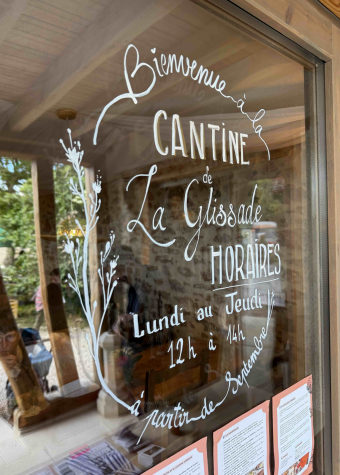 Bienvenue à la
CANTINE
de
La Glissade
HORAIRES
Lundi au Jeudi
12h à 14h
à partir de Septembre